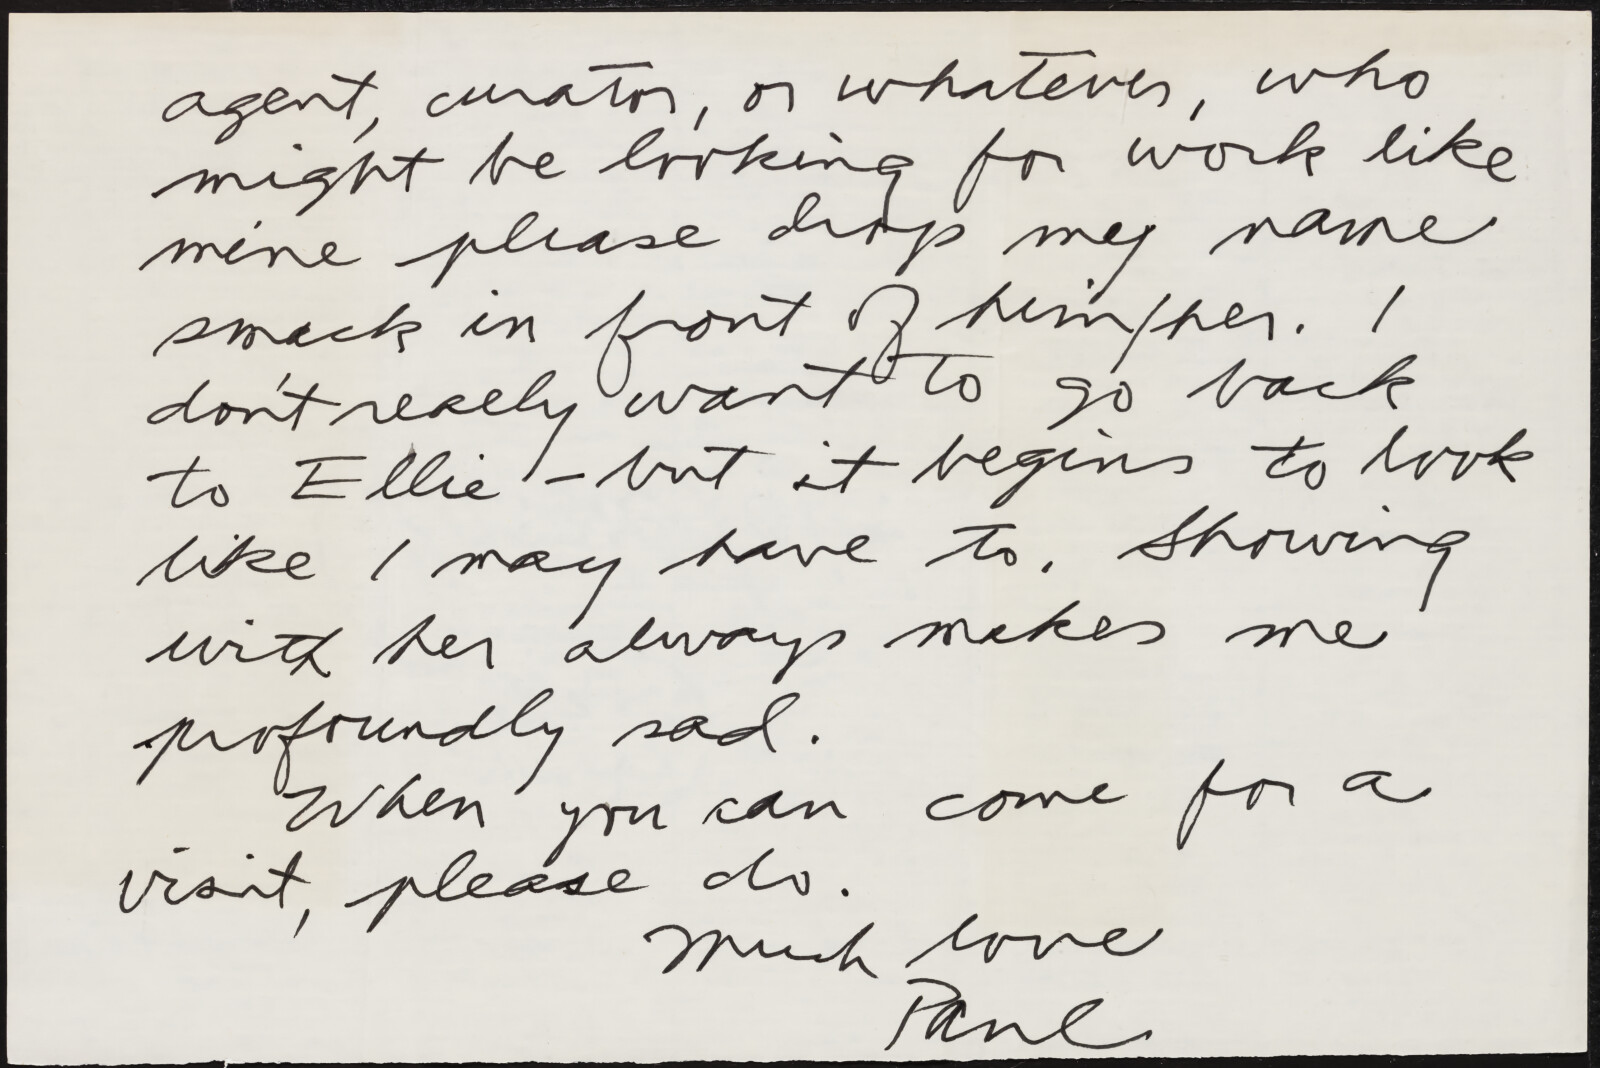 agent, curator, or whatever, who
might be looking for work like
mine please drop my name
smack in front of him/her. I
don't really want to go back
to Ellie - but it begins to look
like I may have to. Showing
with her always makes me
profoundly sad.
When you can come for a
visit, please do.
Much love
Paul